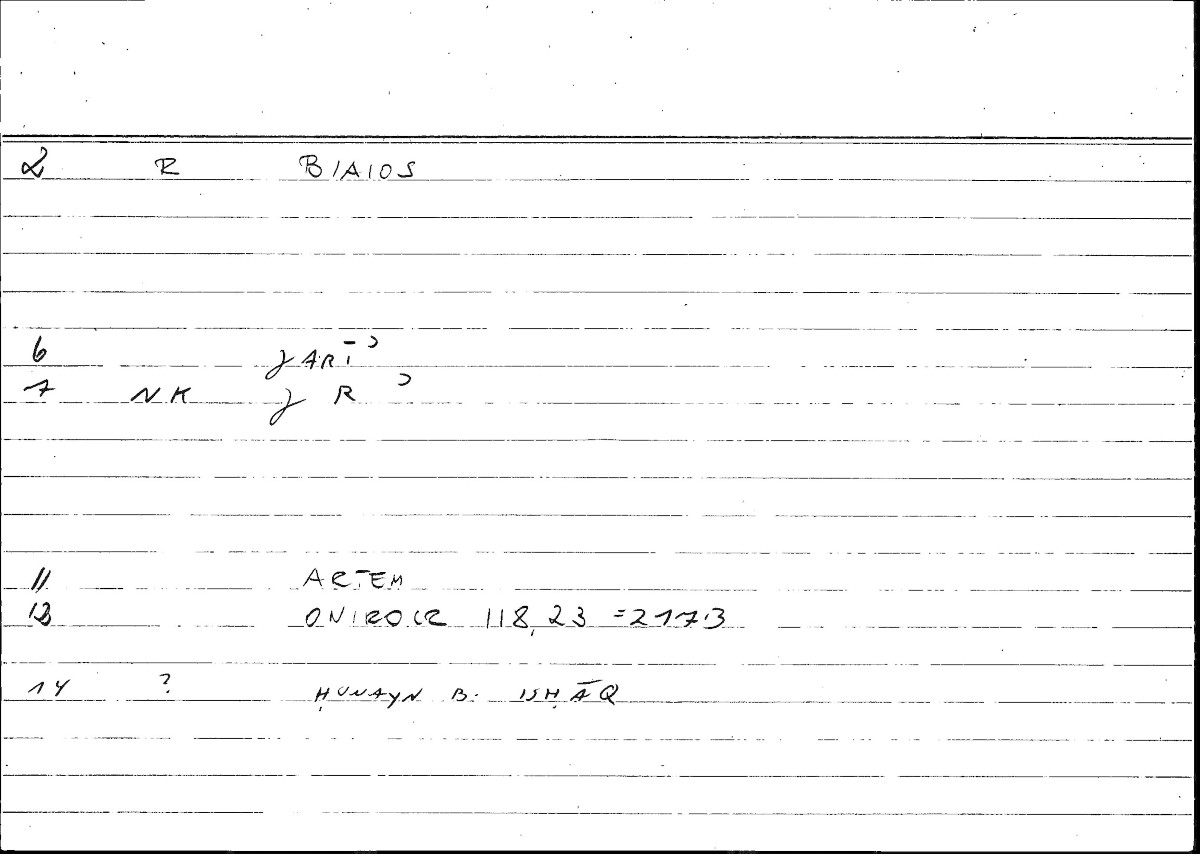 2 R BIAIOS
6 JARĪʾ
7 NK J R ʾ
11 ARTEM
12 ONIROCR 118,23 =217.3
14 ? ḤUNAYN B. ISḤĀQ